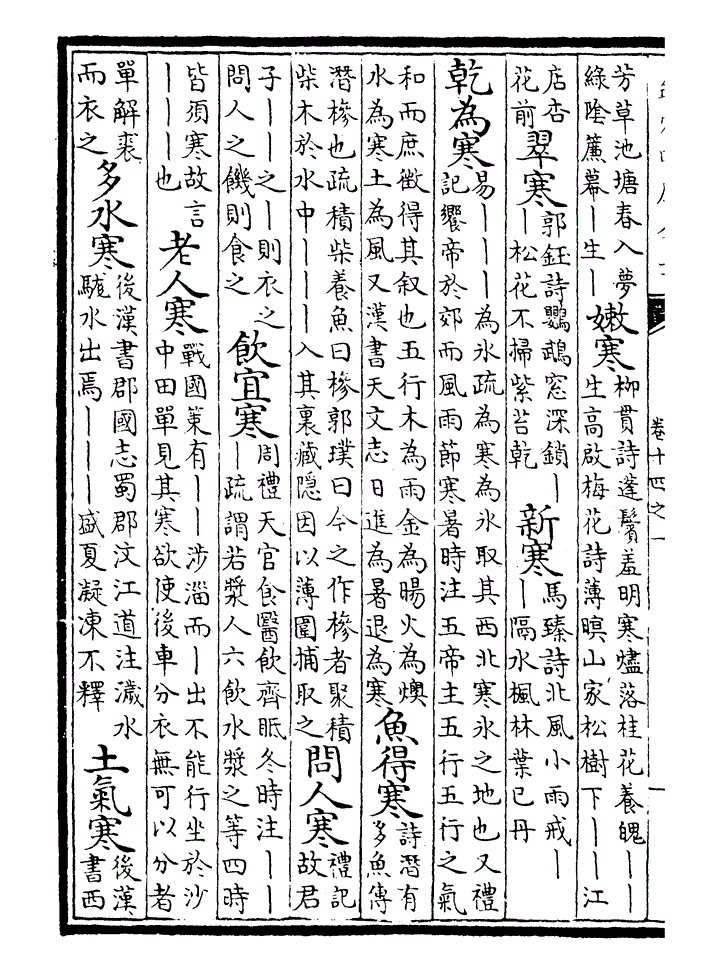 卷十四之一
芳草池塘春入夢
綠陰簾幕丨生丨
嫩寒
柳貫詩蓬鬢羞明寒燼落桂花養魄丨丨
生高啟梅花詩薄暝山家松樹下丨丨丨江
店杏
花前
翠寒
郭鈺詩鸚鵡窓深鎖丨
丨松花不掃紫苔乾
新寒
馬臻詩北風小雨戒丨
丨隔水楓林葉已丹
乾為寒
易丨丨丨為氷疏為寒為氷取其西北寒氷之地也又禮
記饗帝於郊而風雨節寒暑時注五帝主五行五行之氣
和而庶徵得其叙也五行木為雨金為暘火為燠
水為寒土為風又漢書天文志日進為暑退為寒
魚得寒
詩潛有
多魚傳
潛槮也疏積柴養魚曰槮郭璞曰今之作槮者聚積
柴木於水中丨丨丨入其裏藏隱因以薄圍捕取之
問人寒
禮記
故君
子丨丨之丨則衣之
問人之饑則食之
飲宜寒
周禮天官食醫飲齊眡冬時注丨丨
丨疏謂若漿人六飲水漿之等四時
皆須寒故言
丨丨丨也
老人寒
戰國策有丨丨涉淄而丨出不能行坐於沙
中田單見其寒欲使後車分衣無可以分者
單解裘
而衣之
多水寒
後漢書郡國志蜀郡汶江道注濊水
駹水出焉丨丨丨盛夏凝凍不釋
土氣寒
後漢
書西